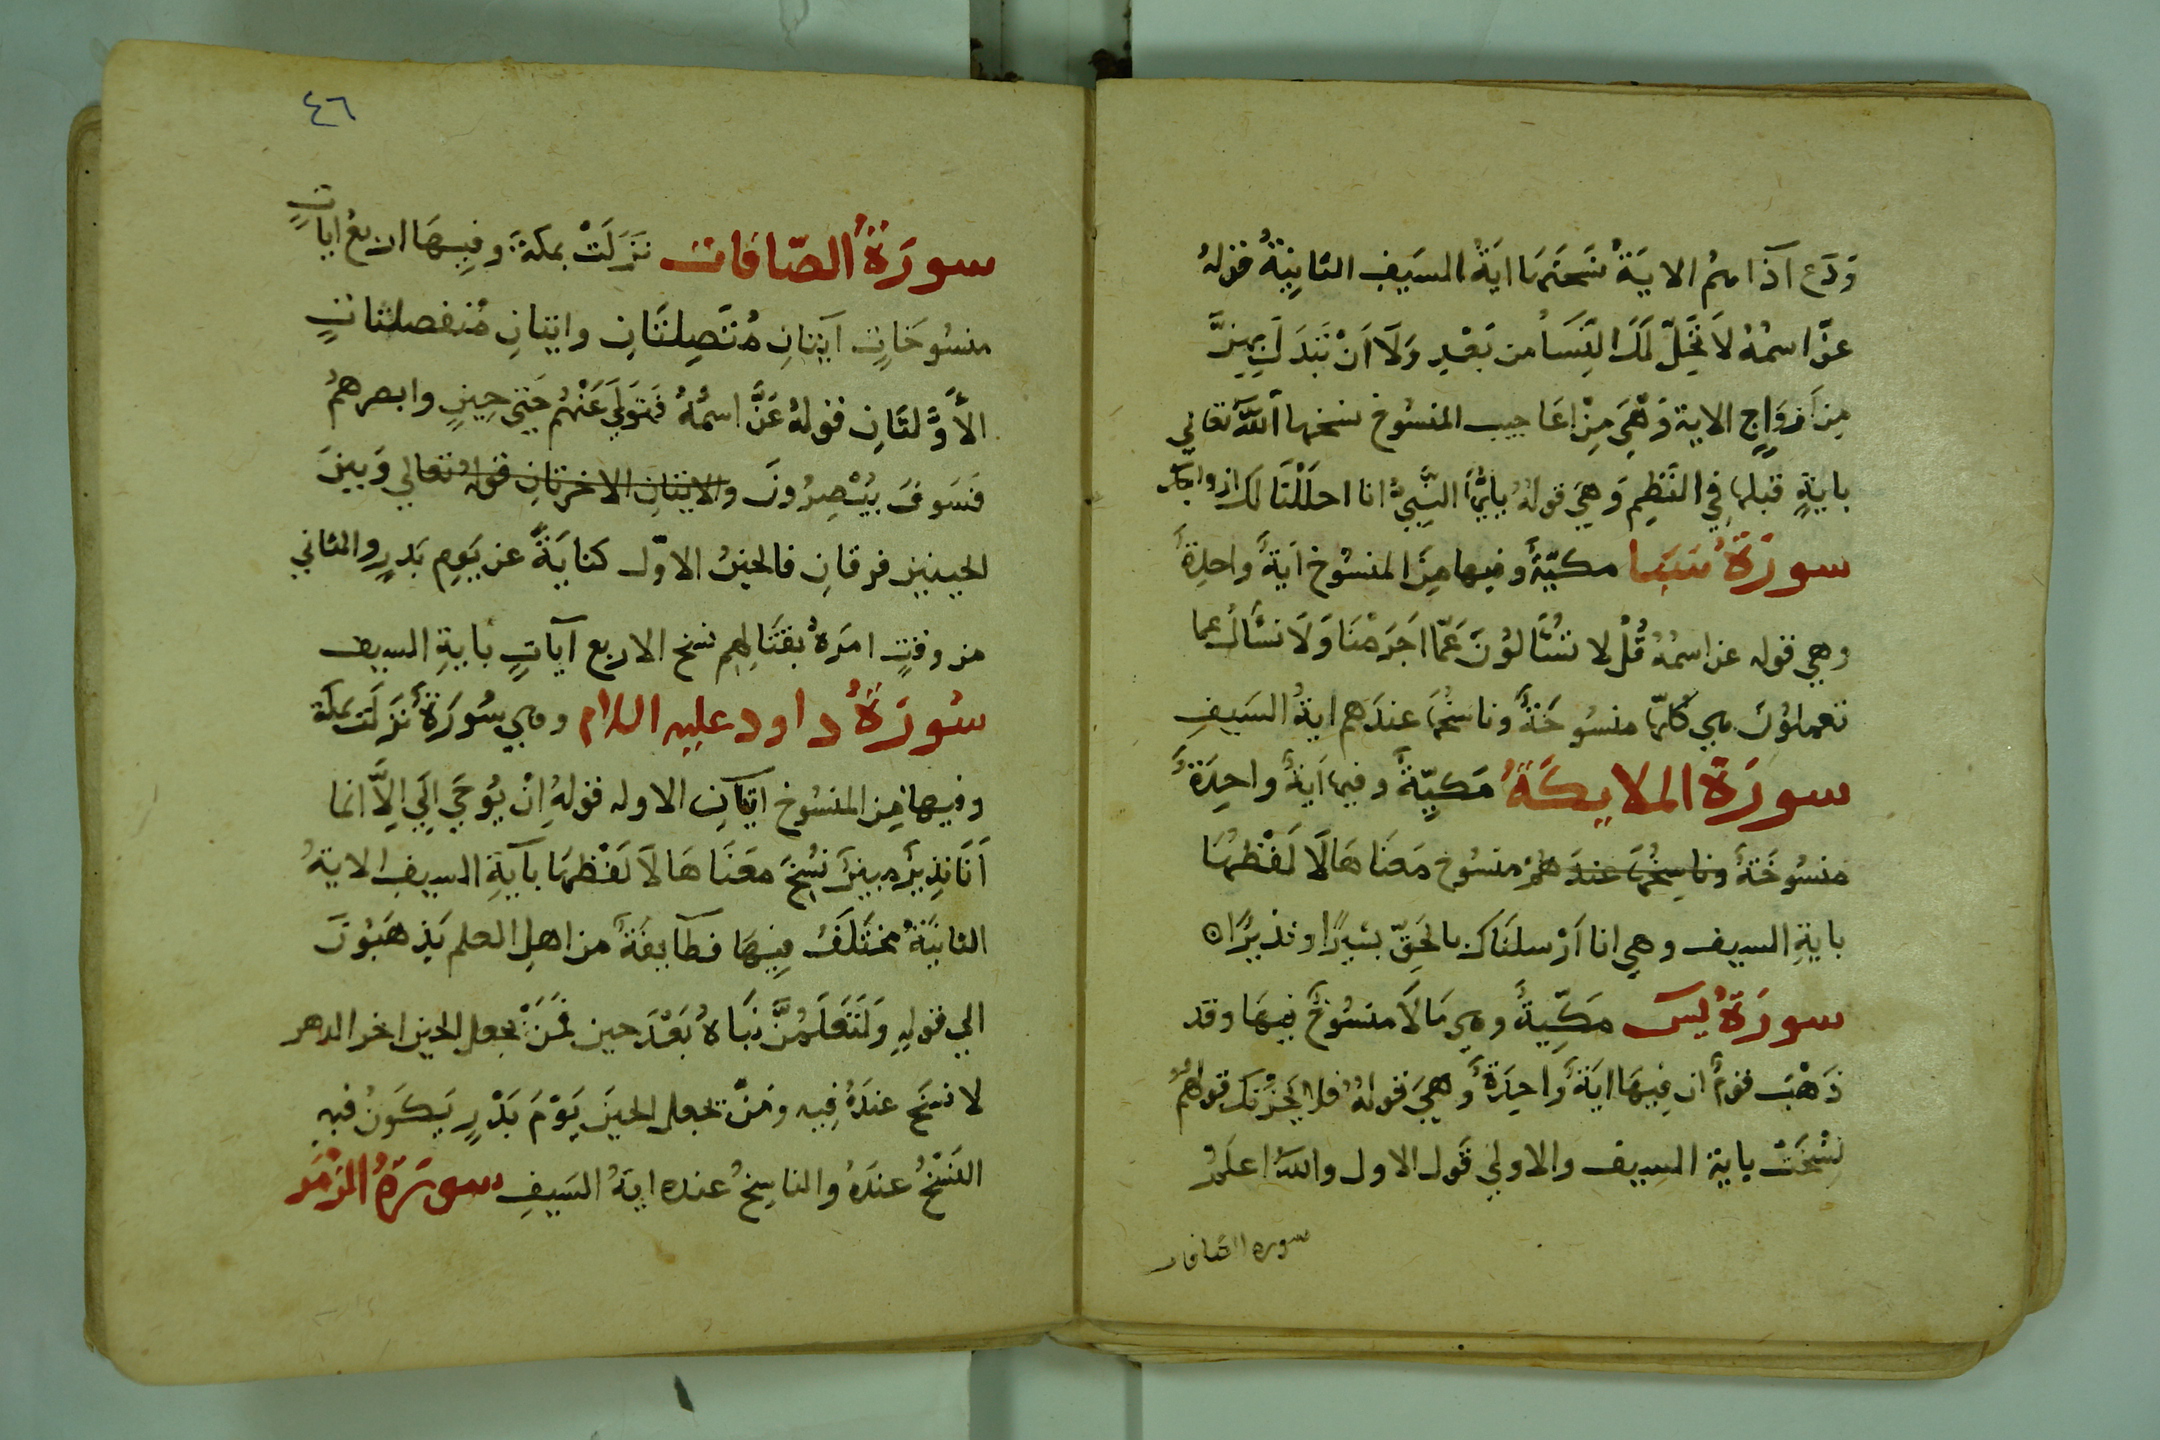 وَدَع آذاهم الاية نسختها اية السيف الثانية قوله
عز اسمه لا تحل لك النسا من بعد ولا ان تبدل بهن
من ازواج الاية وهي من اعاجيب المنسوخ نسخها الله تعالي
باية قبلها في النظم وهي قوله يايها النبي انا احللنا لك ازواجك
سورة سبا مكية وفيها من المنسوخ اية واحدة
وهي قوله عز اسمه قل لا تسالون عما اجرمنا ولا نسال عما
تعملون هي كلها منسوخة وناسخها عندهم اية السيف
سورة الملايكة مكية وفيها اية واحدة
منسوخة وناسخها عندهم منسوخ معناها لا لفظها
باية السيف وهي انا ارسلناك بالحق بشيرا ونذيرا
سورة يس مكية وهي مالا منسوخ فيها وقد
ذهب قوم ان فيها اية واحدة وهي قوله فلا يحزنك قولهم
نسخت باية السيف والاولي قول الاول والله اعلم
سوره الصافات
٤٦
سورة الصافات نزلت بمكة وفيها اربع ايات
منسوخات آيتان متصلتان وايتان منفصلتان
الأولتان قوله عز اسمه فتولي عنهم حتي حين وابصرهم
فسوف يبصرون والايتان الاخرتان قوله تعالي وبين
الحينين فرقان فالحين الاول كناية عن يوم بدر والثاني
من وقت امره بقتالهم نسخ الاربع آيات باية السيف
سورة داود عليه السلام وهي سورة نزلت بمكة
وفيها من المنسوخ ايتان الاوله قوله ان يوحي الي الا انما
انا نذير مبين نسخ معناها لا لفظها بآية السيف الاية
الثانية مختلف فيها فطآيفة من اهل العلم يذهبون
الي قوله ولتعلمن نباه بعد حين فمن جعل الحين اخر الدهر
لا نسخ عنده فيه ومن جعل الحين يوم بدر يكون فيه
النسخ عنده والناسخ عنده اية السيف سورة الزمر